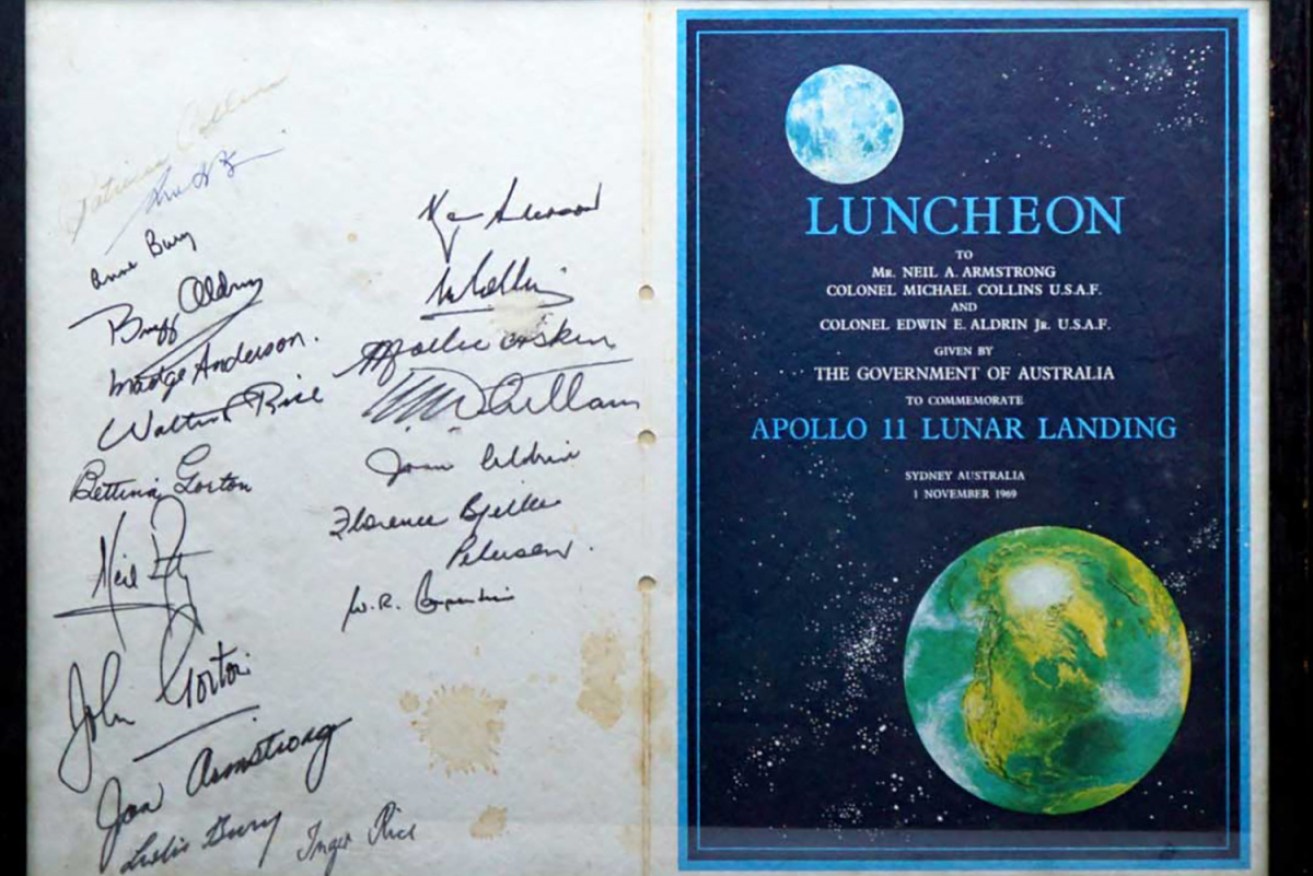 Patricia Collins
Anne Bury
Buzz Aldrin
Madge Anderson.
Walter Rice
Bettina Gorton
Neil
John Gorton
Jan Armstrong
Leslie Bury
Inger Rice
Anderson
M Collins
Mollie Askin
Joan Aldrin
Florence Bjelke
Petersen.
W.R. Carpentier
LUNCHEON
TO
MR. NEIL A. ARMSTRONG
COLONEL MICHAEL COLLINS U.S.A.F.
AND
COLONEL EDWIN E. ALDRIN JR. U.S.A.F.
GIVEN BY
THE GOVERNMENT OF AUSTRALIA
TO COMMEMORATE
APOLLO 11 LUNAR LANDING
SYDNEY AUSTRALIA
1 NOVEMBER 1969